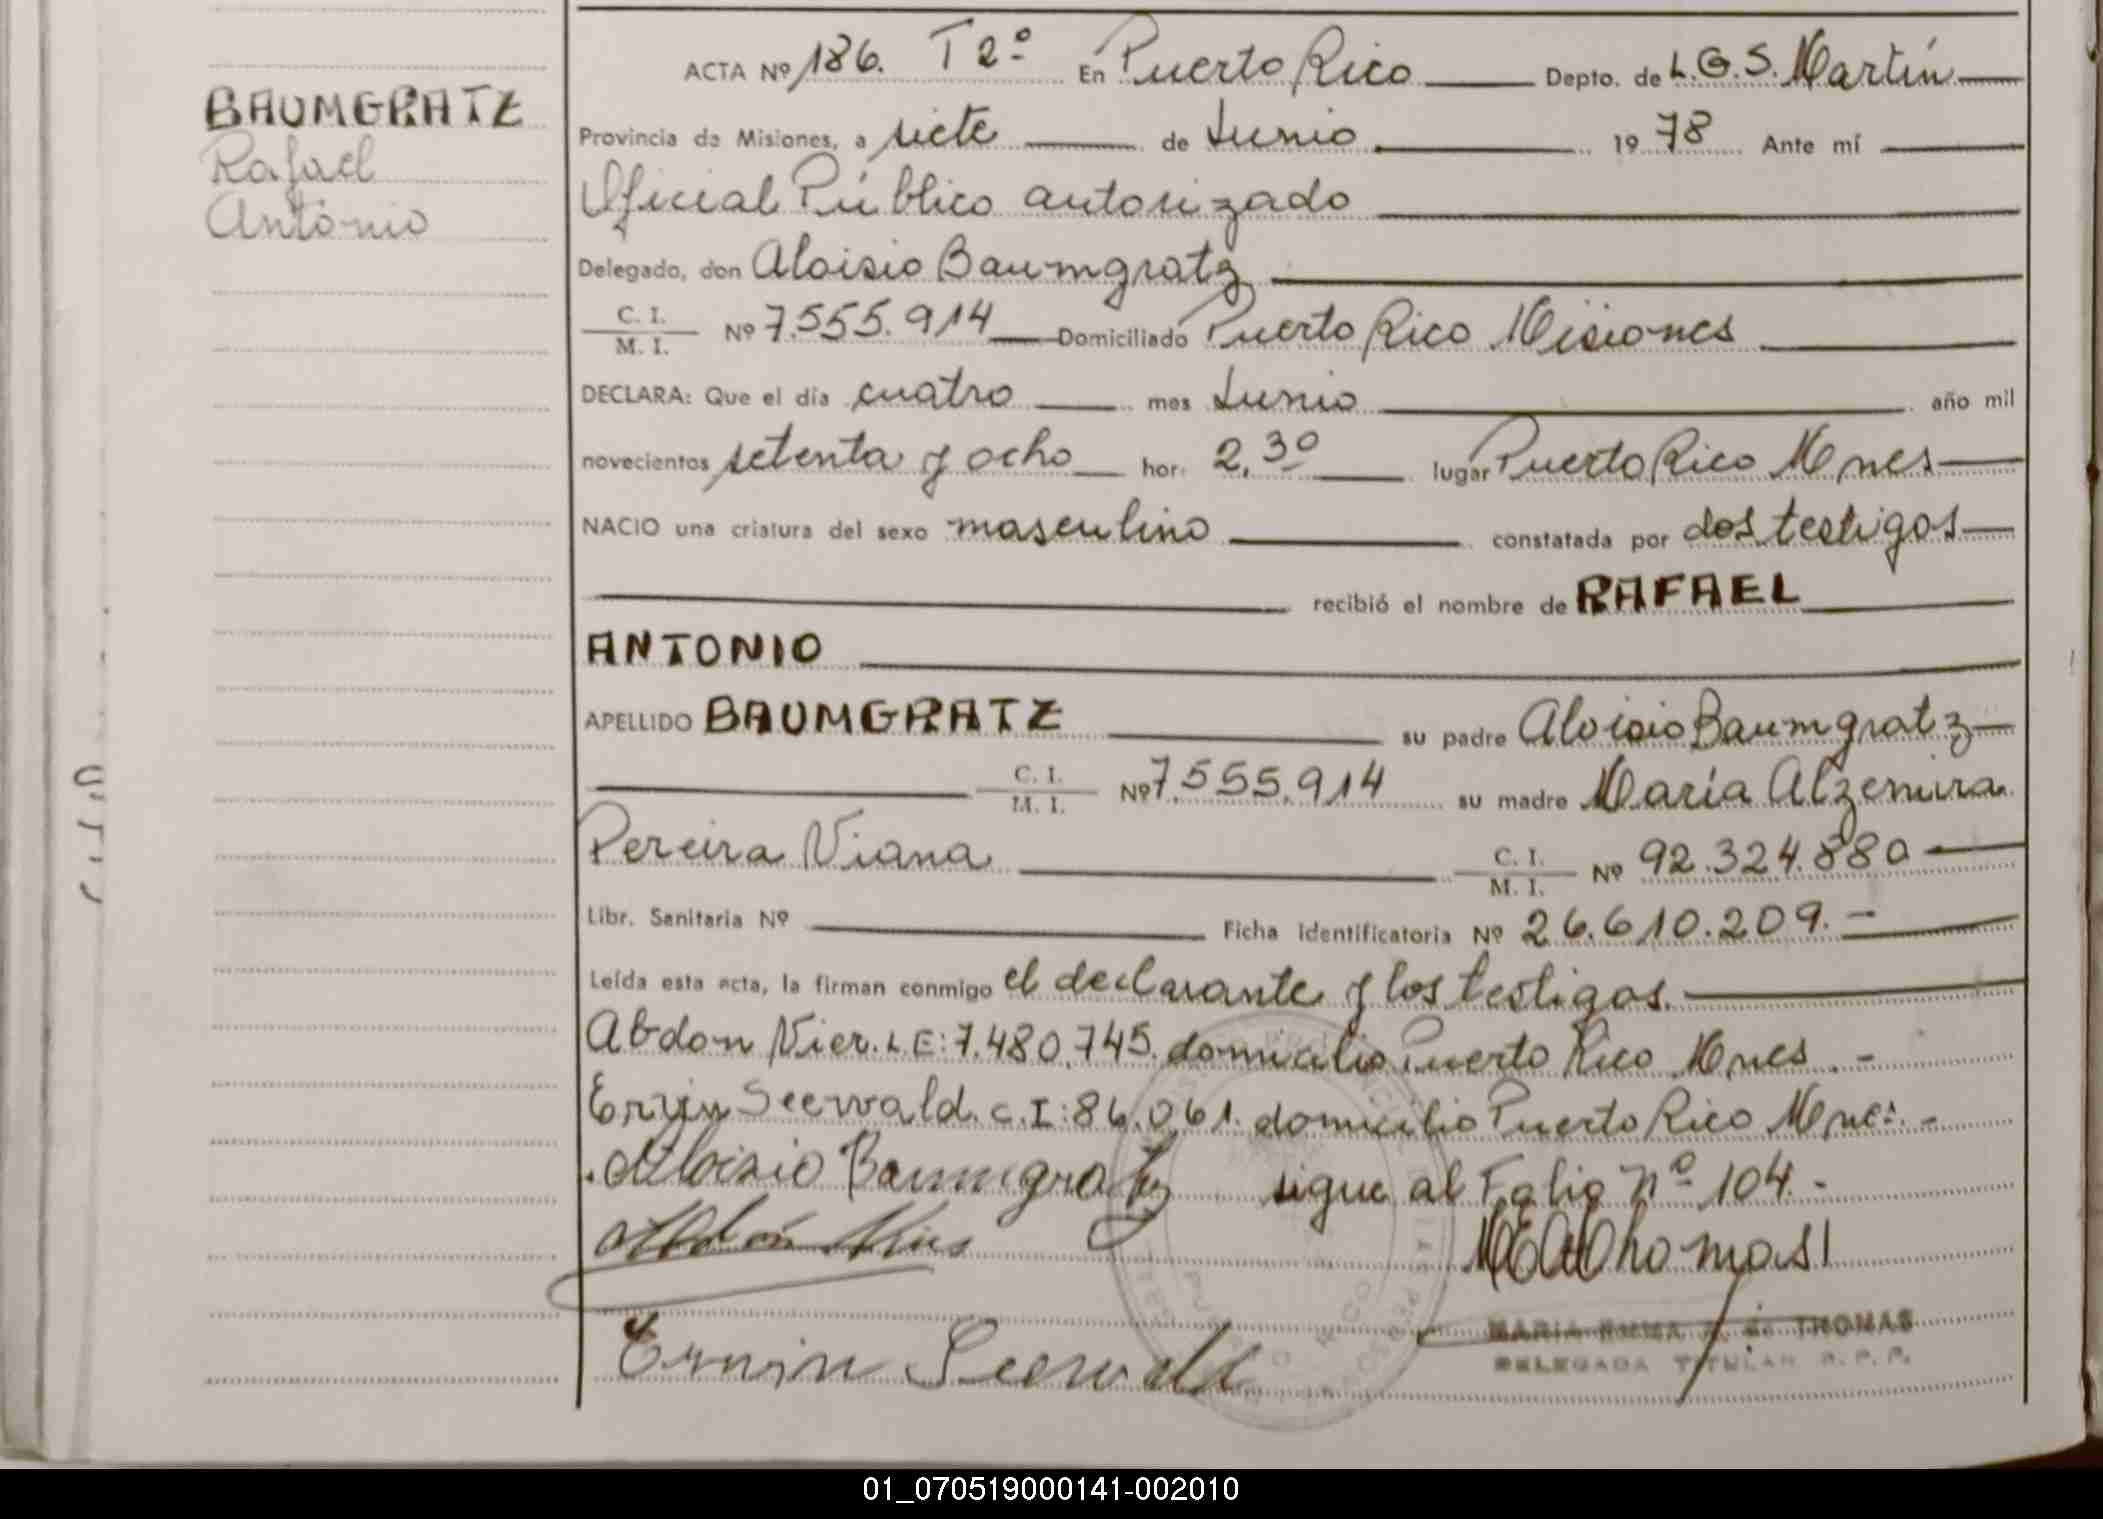 BAUMGRATZ
Rafael
Antonio
ACTA Nº 186. T 2º En Puerto Rico Depto. de L.G.S. Martín
Provincia de Misiones, a siete de Junio 1978 Ante mí
Oficial Público autorizado
Delegado, don Aloisio Baumgratz
C. I.
M. I. Nº 7.555.914 Domiciliado Puerto Rico Misiones
DECLARA: Que el día cuatro mes Junio año mil
novecientos setenta y ocho hor. 2,30 lugar Puerto Rico Mnes
NACIO una criatura del sexo masculino constatada por dos testigos
recibió el nombre de RAFAEL
ANTONIO
APELLIDO BAUMGRATZ su padre Aloisio Baumgratz
C. I.
M. I. Nº 7.555.914 su madre María Alzemira
Pereira Viana C. I.
M. I. Nº 92.324.880
Libr. Sanitaria Nº Ficha identificatoria Nº 26.610.209.-
Leída esta acta, la firman conmigo el declarante y los testigos.
Abdon Vier. L.E: 7.480.745. domicilio Puerto Rico Mnes.-
Erwin Seewald. C.I: 86.061. domicilio Puerto Rico Mnes.-
Aloisio Baumgratz sigue al Folio nº 104.-
MEAThomas
Erwin Seewald
MARIA EMMA A. de THOMAS
DELEGADA TITULAR R. P. P.
PUERTO RICO
01_070519000141-002010